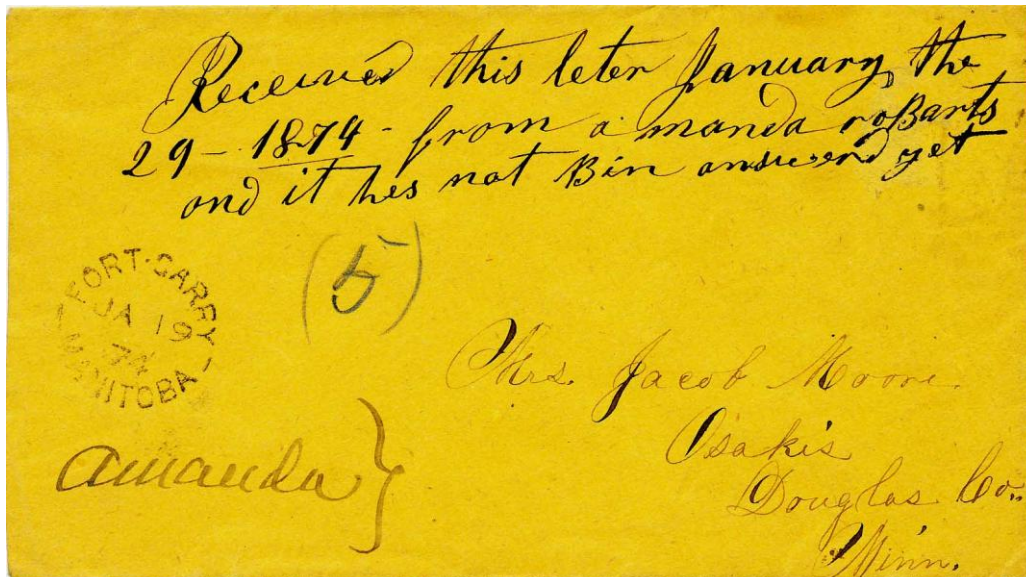 Received this leter January the
29 - 1874 - from a manda roBarts
and it hes not Bin answerd yet
(5)
FORT-GARRY
JA 19
74
MANITOBA
Mrs. Jacob Moore
Osakis
Douglas Co.
Minn.
Amanda